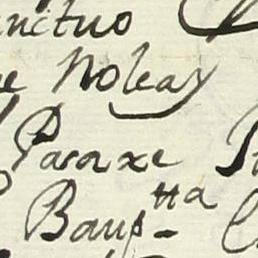 nctuo
e Noleay
Paraxe
Baup^tta